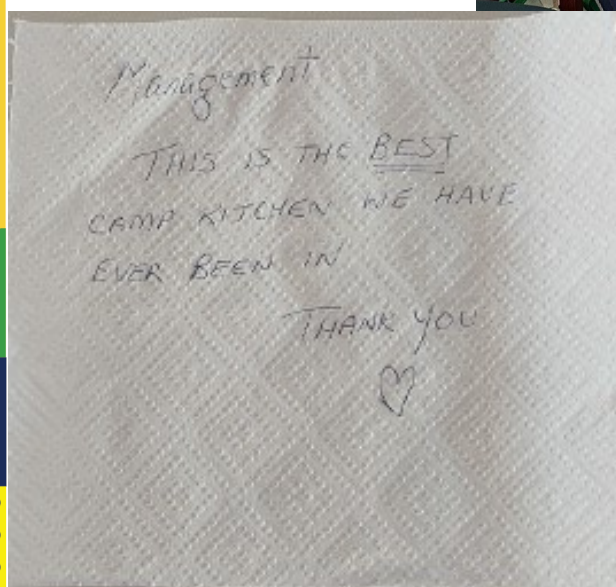 Management
THIS IS THE BEST
CAMP KITCHEN WE HAVE
EVER BEEN IN
THANK YOU